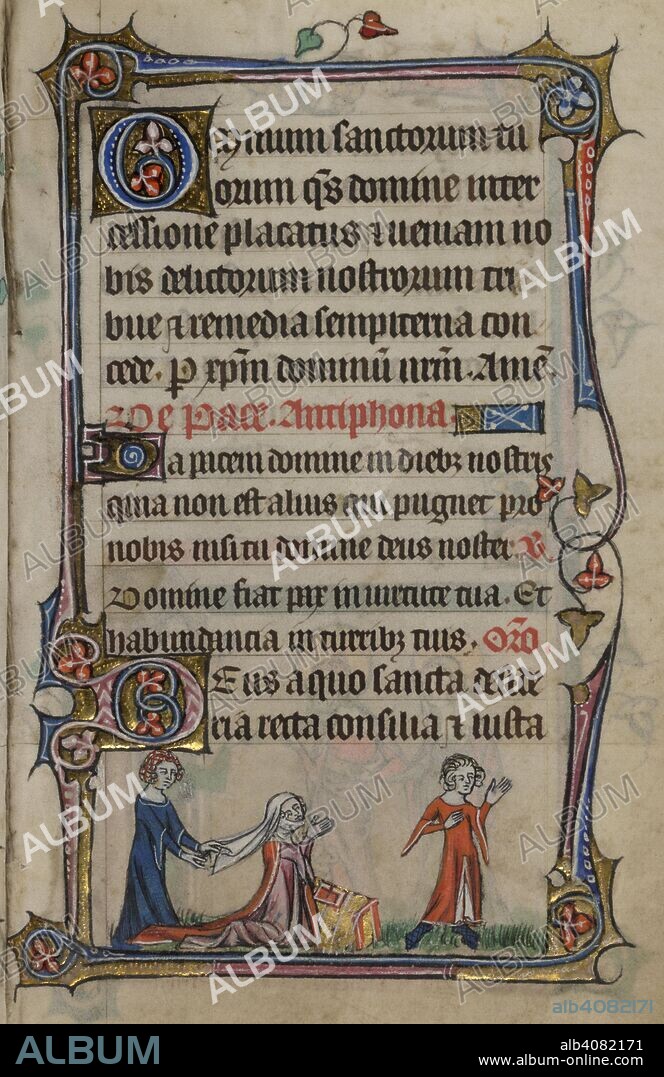 Omnium sanctorum tu
orum q̃s domine inter
cessione placatus ⁊ ueniam no
bis delictorum nostrorum tri
bue ⁊ remedia sempiterna con
cede. P xp̃m dominū nr̃m. Amē
De pace. Antiphona.
Da pacem domine in dieb; nostris
quia non est alius qui pugnet pro
nobis nisi tu domine deus noster. V
Domine fiat pax in uirtute tua. Et
habundancia in turrib; tuis. Orõ
Deus a quo sancta deside
ria recta consilia ⁊ iusta
ALBUM
alb4082171
ALBUM
alb4082171
www.album-online.com